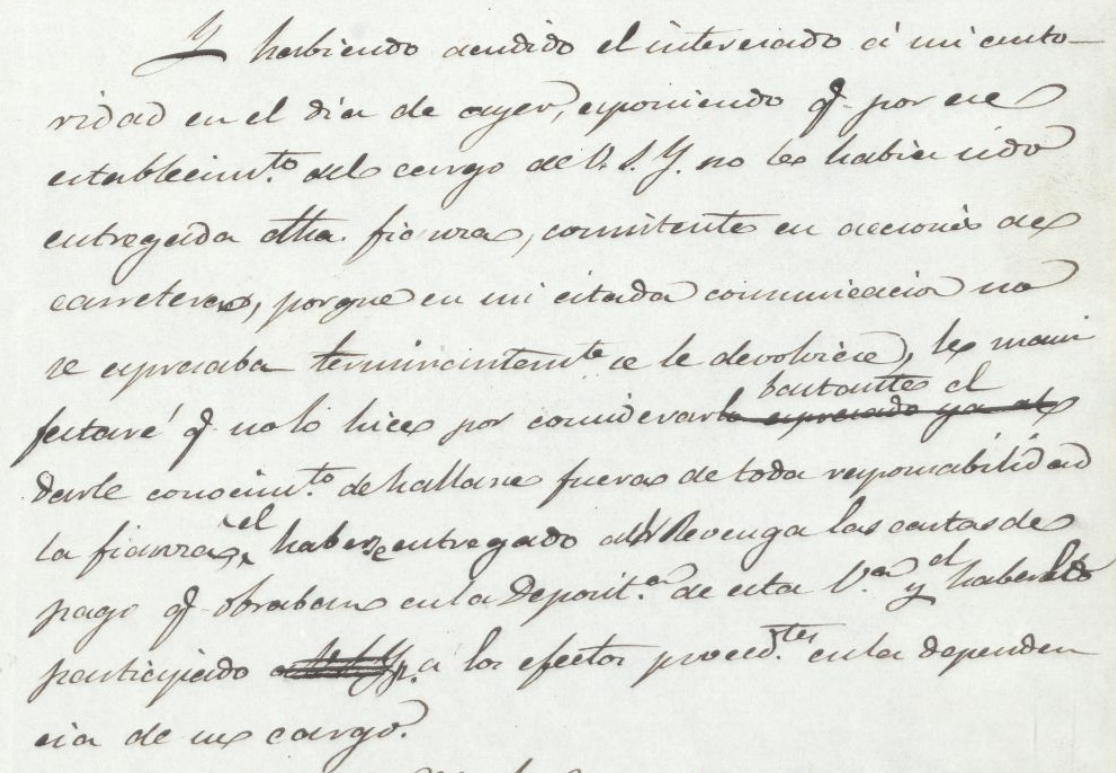 Y habiendo acudido el interesado á mi auto-
ridad en el dia de ayer, esponiendo q. por ese
establecim.to del cargo de V. S. Y. no le habia sido
entregada dha. fianza, consistente en acciones de
carreteras, porque en mi citada comunicacion no
se espresaba terminantem.te se le devolviese, le mani
bastante el
festaré q. no lo hice por considerarlo espresado ya al
darle conocim.to de hallarse fuera de toda responsabilidad
la fianza, el haberse entregado al Revenga las cartas de
pago q. obraban en la Deposit.a de esta V.a y el haberlo
participado a V.S.Y. a los efectos proced.tes en la dependen
cia de su cargo.